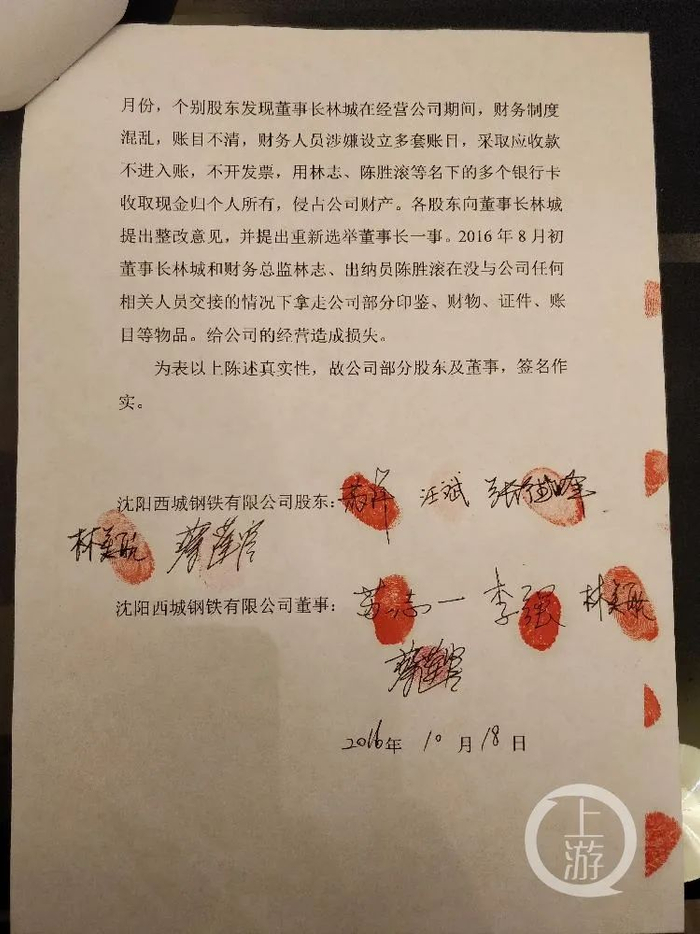 月份，个别股东发现董事长林城在经营公司期间，财务制度
混乱，账目不清，财务人员涉嫌设立多套账日，采取应收款
不进入账，不开发票，用林志、陈胜滚等名下的多个银行卡
收取现金归个人所有，侵占公司财产。各股东向董事长林城
提出整改意见，并提出重新选举董事长一事。2016 年 8 月初
董事长林城和财务总监林志、出纳员陈胜滚在没与公司任何
相关人员交接的情况下拿走公司部分印鉴、财物、证件、账
目等物品。给公司的经营造成损失。
为表以上陈述真实性，故公司部分股东及董事，签名作
实。
沈阳西城钢铁有限公司股东： 汪斌
沈阳西城钢铁有限公司董事： 李强
2016年 10月18日
上游